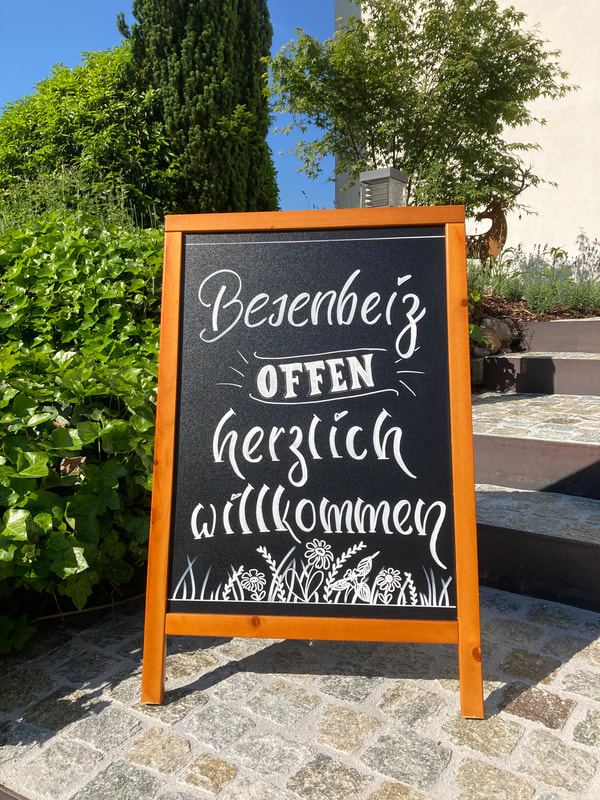 Besenbeiz
OFFEN
herzlich
willkommen